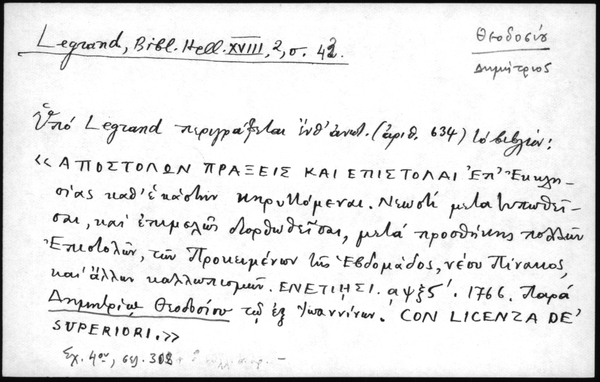 Legrand, Bibl. Hell. XVIII, 2, σ. 42.
Θεοδοσίου
Δημήτριος
Ὑπό Legrand περιγράφεται ἐνθ' ἀνωτ. (ἀριθ. 634) τό βιβλίον:
«ΑΠΟΣΤΟΛΩΝ ΠΡΑΞΕΙΣ ΚΑΙ ΕΠΙΣΤΟΛΑΙ Ἐπ' Ἐκκλη-
σίας καθ' ἑκάστην κηρυττόμεναι. Νεωστί μετατυπωθεῖ-
σαι, καί ἐπιμελῶς διορθωθεῖσαι, μετά προσθήκης πολλῶν
Ἐπιστολῶν, τῶν Προκειμένων τῆς Ἑβδομάδος, νέου Πίνακος,
καί ἄλλων καλλωπισμῶν. ΕΝΕΤΙΗΣΙ. αψξϛ΄. 1766. Παρά
Δημητρίῳ Θεοδοσίου τῷ ἐξ Ἰωαννίνων. CON LICENZA DE'
SUPERIORI.»
Σχ. 4ον, σελ.